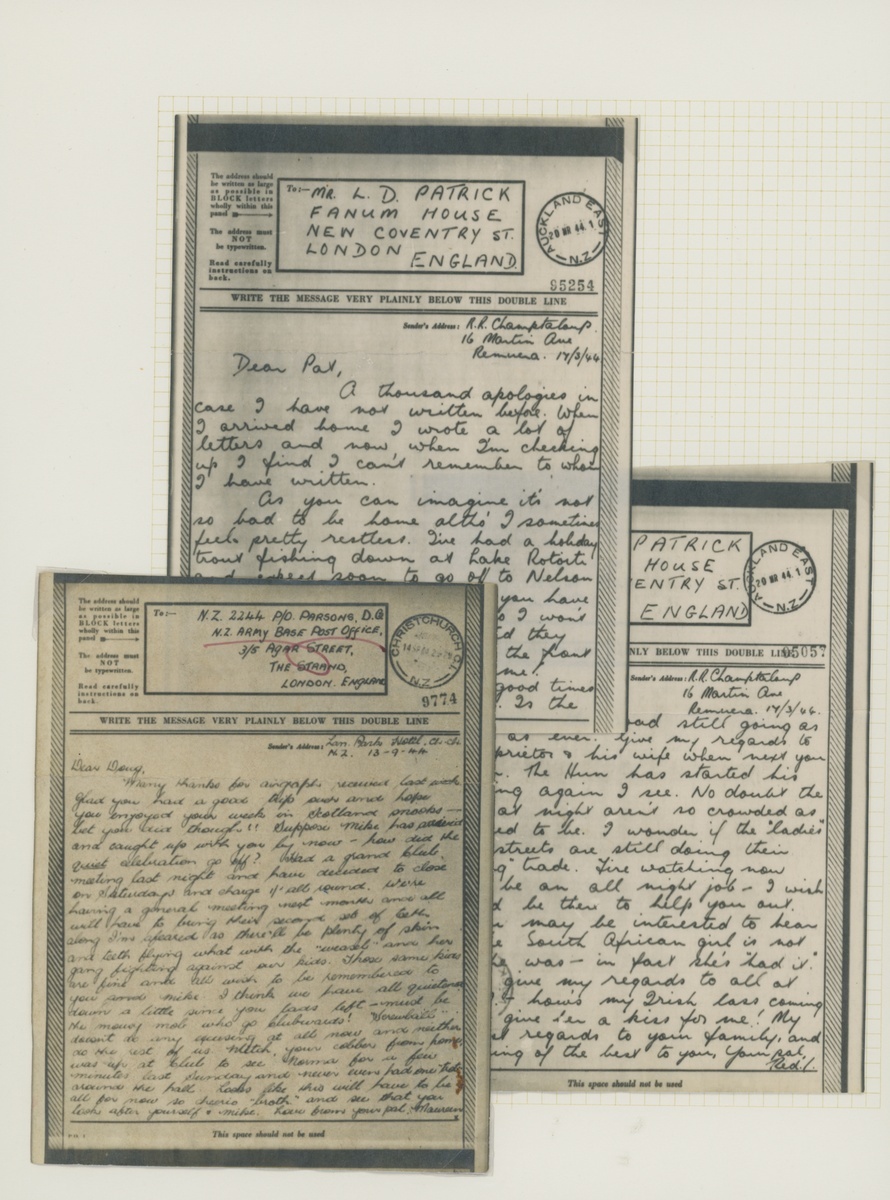 The address should
be written as large
as possible in
BLOCK letters
wholly within this
panel
The address must
NOT
be typewritten.
Read carefully
instructions on
back.
To:— MR. L. D. PATRICK
FANUM HOUSE
NEW COVENTRY ST.
LONDON
ENGLAND.
AUCKLAND EAST
20 MR 44. 1
N.Z.
95254
WRITE THE MESSAGE VERY PLAINLY BELOW THIS DOUBLE LINE
Sender's Address: R.R. Champtaloup.
16 Martin Ave
Remuera. 17/3/44
Dear Pat,
A thousand apologies in
case I have not written before. When
I arrived home I wrote a lot of
letters and now when I'm checking
up I find I can't remember to whom
I have written.
As you can imagine it's not
so bad to be home altho' I sometimes
feel pretty restless. I've had a holiday
trout fishing down at Lake Rotoiti
and expect soon to go off to Nelson
you have
I won't
they
the
me!
good times
. Is the
PATRICK
HOUSE
ENTRY ST.
ENGLAND
AUCKLAND EAST
20 MR 44. 1
N.Z.
95057
NLY BELOW THIS DOUBLE LINE
Sender's Address: R.R. Champtaloup
16 Martin Ave
Remuera. 17/3/44.
still going as
as ever. Give my regards to
prietor & his wife when next you
. The Hun has started his
ng again I see. No doubt the
at night aren't so crowded as
ed to be. I wonder if the "ladies"
streets are still doing their
g" trade. Fire watching now
be an all night job – I wish
d be there to help you out.
may be interested to hear
South African girl is not
he was – in fact she's "had it".
give my regards to all at
hows my Irish lass coming
give 'er a kiss for me! My
regards to your family, and
ing of the best to you, Your pal,
This space should not be used
The address should
be written as large
as possible in
BLOCK letters
wholly within this
panel
The address must
NOT
be typewritten.
Read carefully
instructions on
back.
To:— N.Z. 2244 P/O. PARSONS, D.G
N.Z. ARMY BASE POST OFFICE,
3/5 AGAR STREET,
THE STRAND,
LONDON. ENGLAND
CHRISTCHURCH
N.Z.
9774
WRITE THE MESSAGE VERY PLAINLY BELOW THIS DOUBLE LINE
Sender's Address: Hotel, Ch.Ch.
N.Z. 13-9-44
Dear Doug,
Many thanks for airgraph received last week
glad you had a good trip over and hope
you enjoyed your week in Scotland
bet you did though!! Suppose Mike has arrived
and caught up with you by now – how did the
quiet celebration go off? Had a grand club
meeting last night and have decided to close
on Saturdays and charge 1/- all round. We're
having a general meeting next month and all
will have to bring their second set of teeth
along I'm afeared as there'll be plenty of skin
and teeth flying what with the "weasel" and her
gang fighting against our kids. Those same kids
are fine and all wish to be remembered to
you and Mike. I think we have all quietened
down a little since you lads left – must be
the mouldy mob who go clubwards! "Screwball"
doesn't do any at all now and neither
do the rest of us. Mitch, your from home
was up at club to see Norma for a few
minutes last Sunday and never even had one
around the hall. Looks like this will have to be
all for now so cheerio "broth" and see that you
look after yourself & Mike. Love from your pal, Maureen
This space should not be used